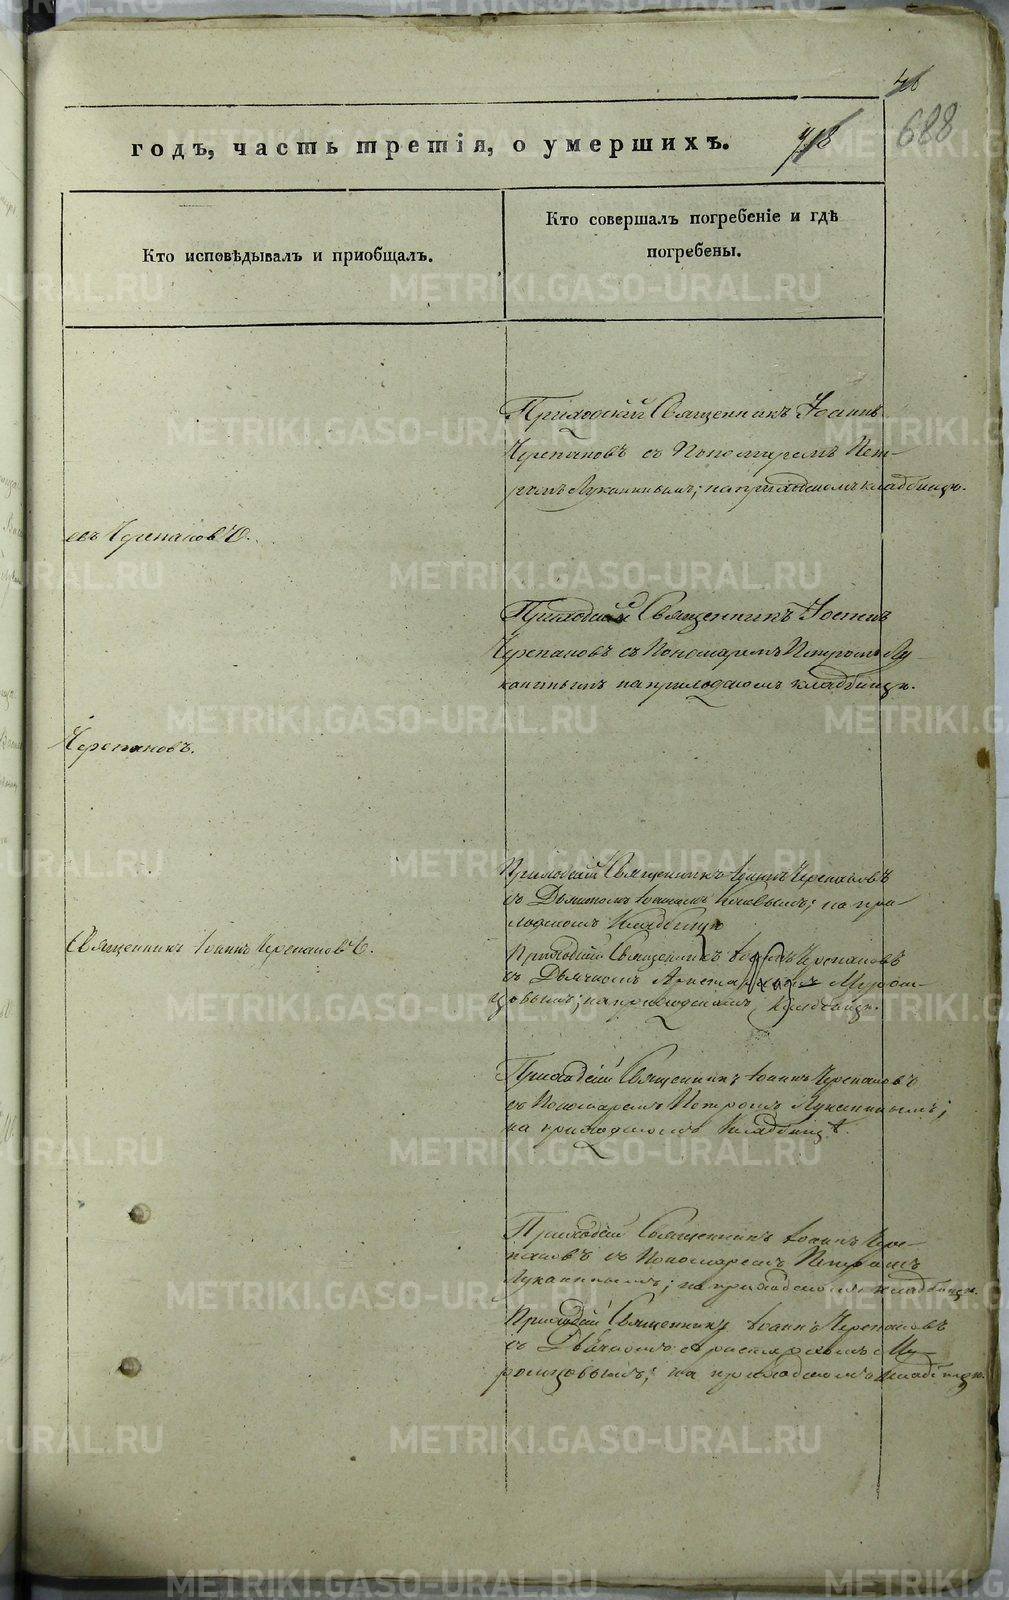 688
годъ, часть третія, о умершихъ.
Кто исповѣдывалъ и приобщалъ.
Кто совершалъ погребеніе и гдѣ
погребены.
Приходскій Священникъ Іоаннъ
Черепановъ съ Пономаремъ Пет-
ромъ Луканинымъ; на приходскомъ кладбищѣ.
Черепановъ.
Приходскій Священникъ Іоаннъ
Черепановъ съ Пономаремъ Петромъ Лу-
канинымъ на приходскомъ кладбищѣ.
Черепановъ.
Приходскій Священникъ Іоаннъ Черепановъ
съ на при-
ходскомъ кладбищѣ
Священникъ Іоаннъ Черепановъ.
Приходскій Священникъ Іоаннъ Черепановъ
съ Дьячкомъ Муром-
цовымъ; на приходскомъ кладбищѣ.
Приходскій Священникъ Іоаннъ Черепановъ
съ Пономаремъ Петромъ Луканинымъ;
на приходскомъ кладбищѣ.
Приходскій Священникъ Іоаннъ Чере-
пановъ съ Пономаремъ Петромъ
Луканинымъ; на приходскомъ кладбищѣ.
Приходскій Священникъ Іоаннъ Черепановъ
съ Дьячкомъ Аристархомъ Му-
ромцовымъ; на приходскомъ кладбищѣ.
METRIKI.GASO-URAL.RU